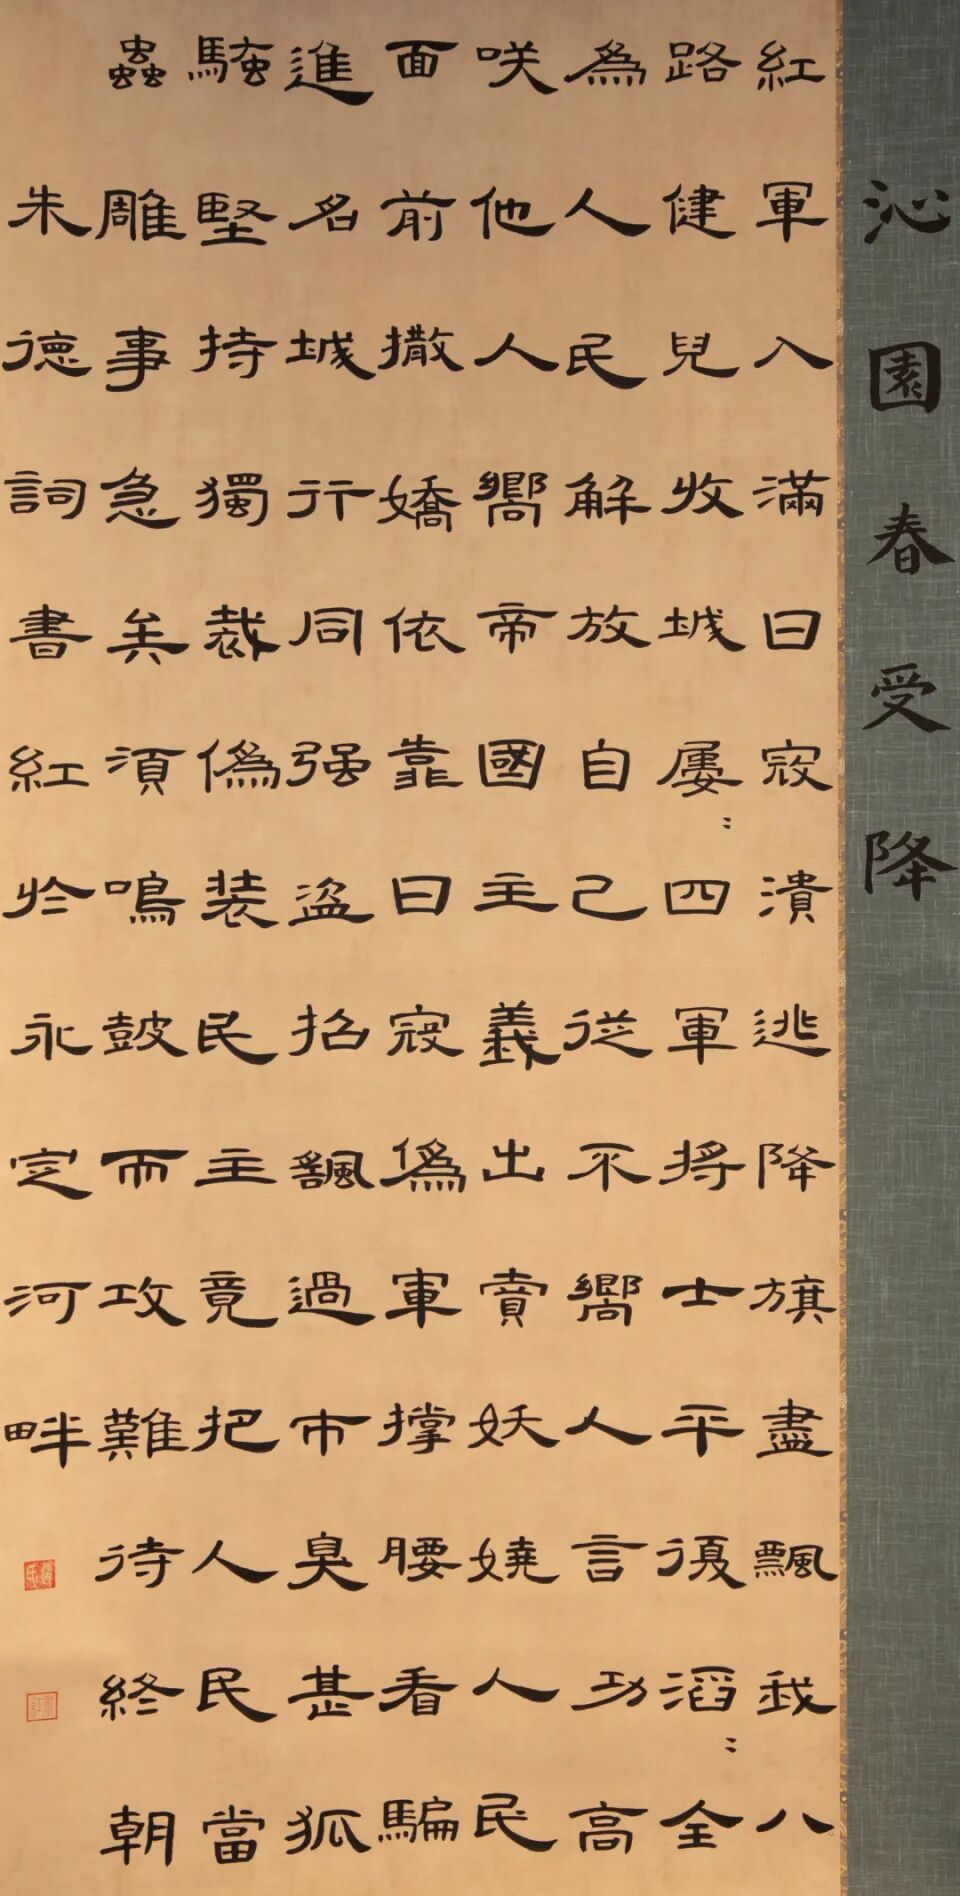 沁園春受降
紅軍入滿日寇潰逃降旗盡飄我八
路健兒收城屢〻四軍將士平復滔〻全
為人民解放自己從不嚮人言功高
咲他人嚮帝國主義出賣妖嬈人民
面前撒嬌依靠日寇偽軍撑腰看騙
進名城行同强盗招颻過市臭甚狐
騷堅持獨裁偽裝民主竟把人民當
蟲雕事急矣須鳴鼓而攻難待終朝
朱德詞書紅於永定河畔